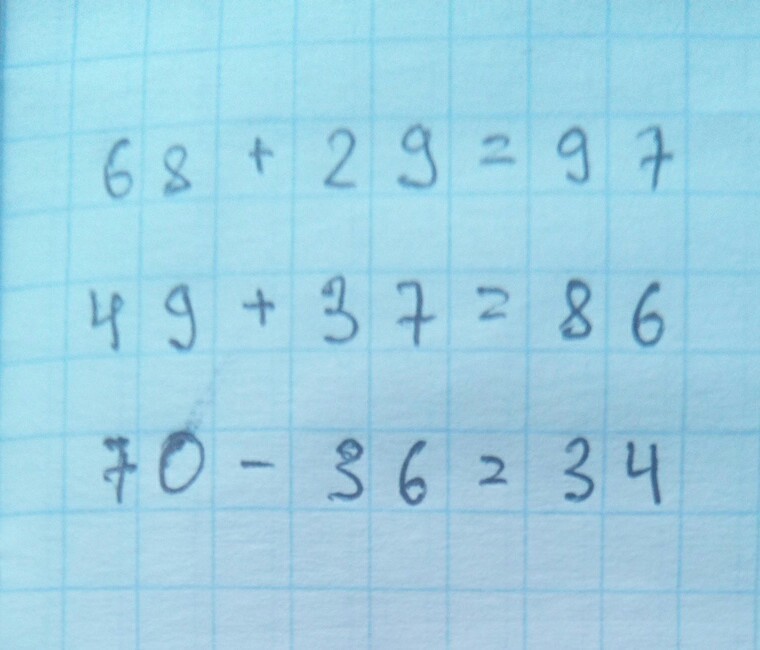 68 + 29 = 97
49 + 37 = 86
70 - 36 = 34